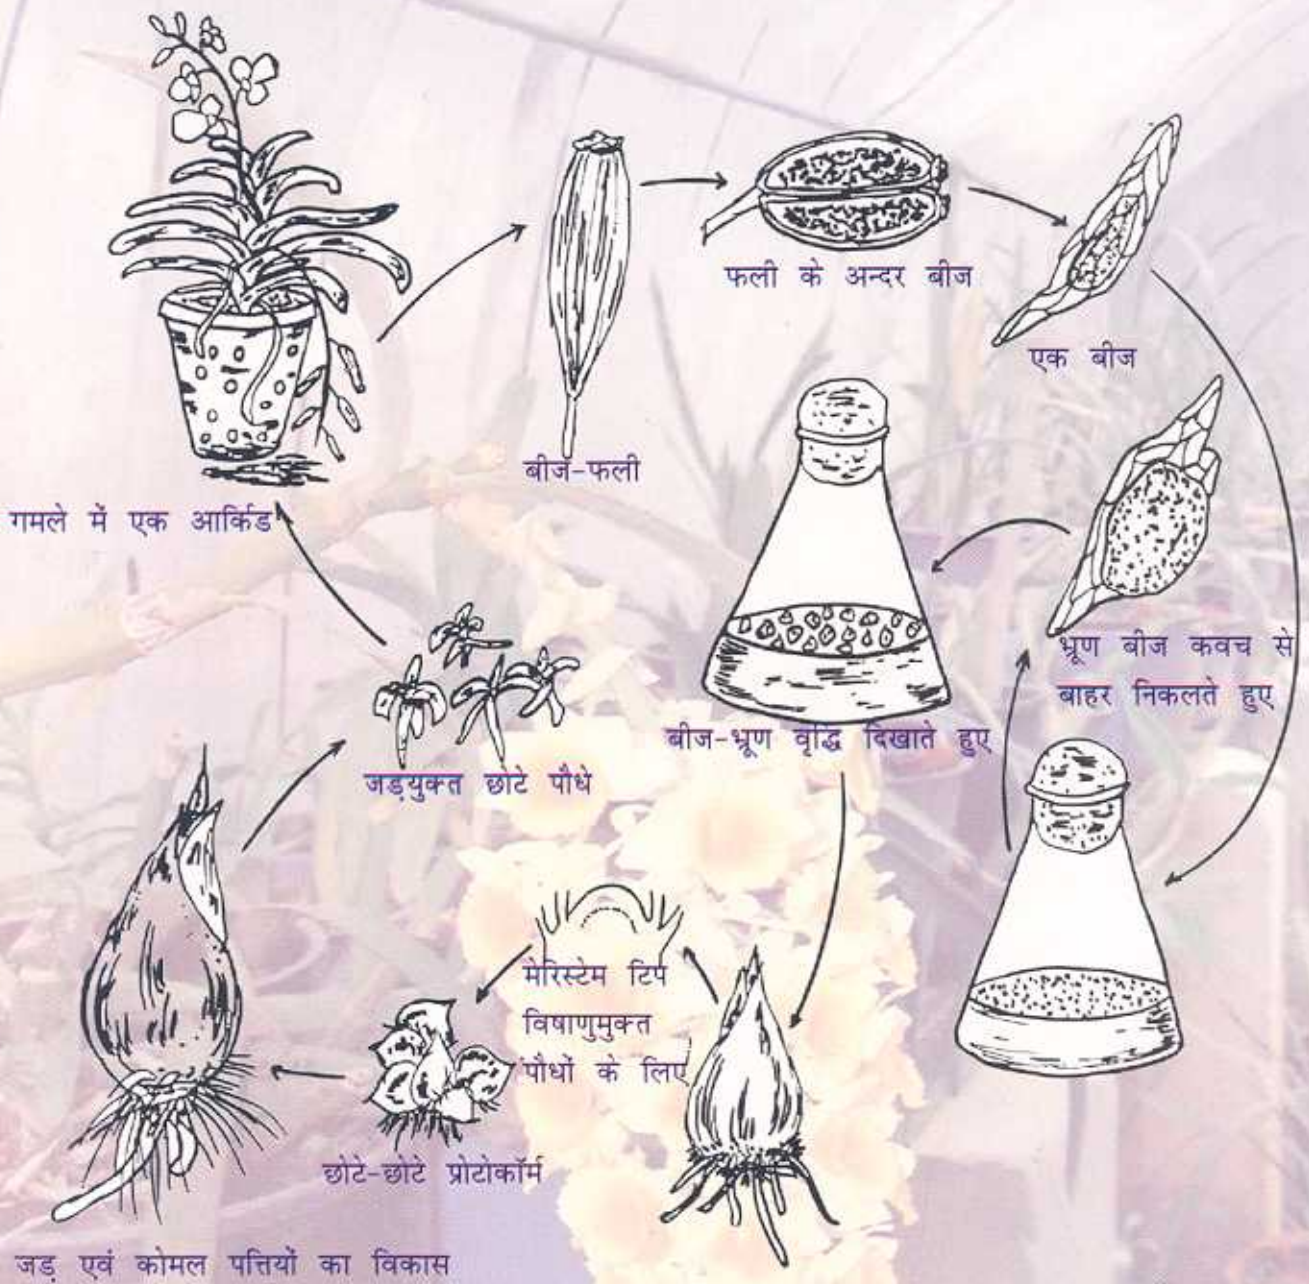 फली के अन्दर बीज
एक बीज
बीज-फली
गमले में एक आर्किड
भ्रूण बीज कवच से
बाहर निकलते हुए
बीज-भ्रूण वृद्धि दिखाते हुए
जड़युक्त छोटे पौधे
मेरिस्टेम टिप
विषाणुमुक्त
पौधों के लिए
छोटे-छोटे प्रोटोकॉर्म
जड़ एवं कोमल पत्तियों का विकास